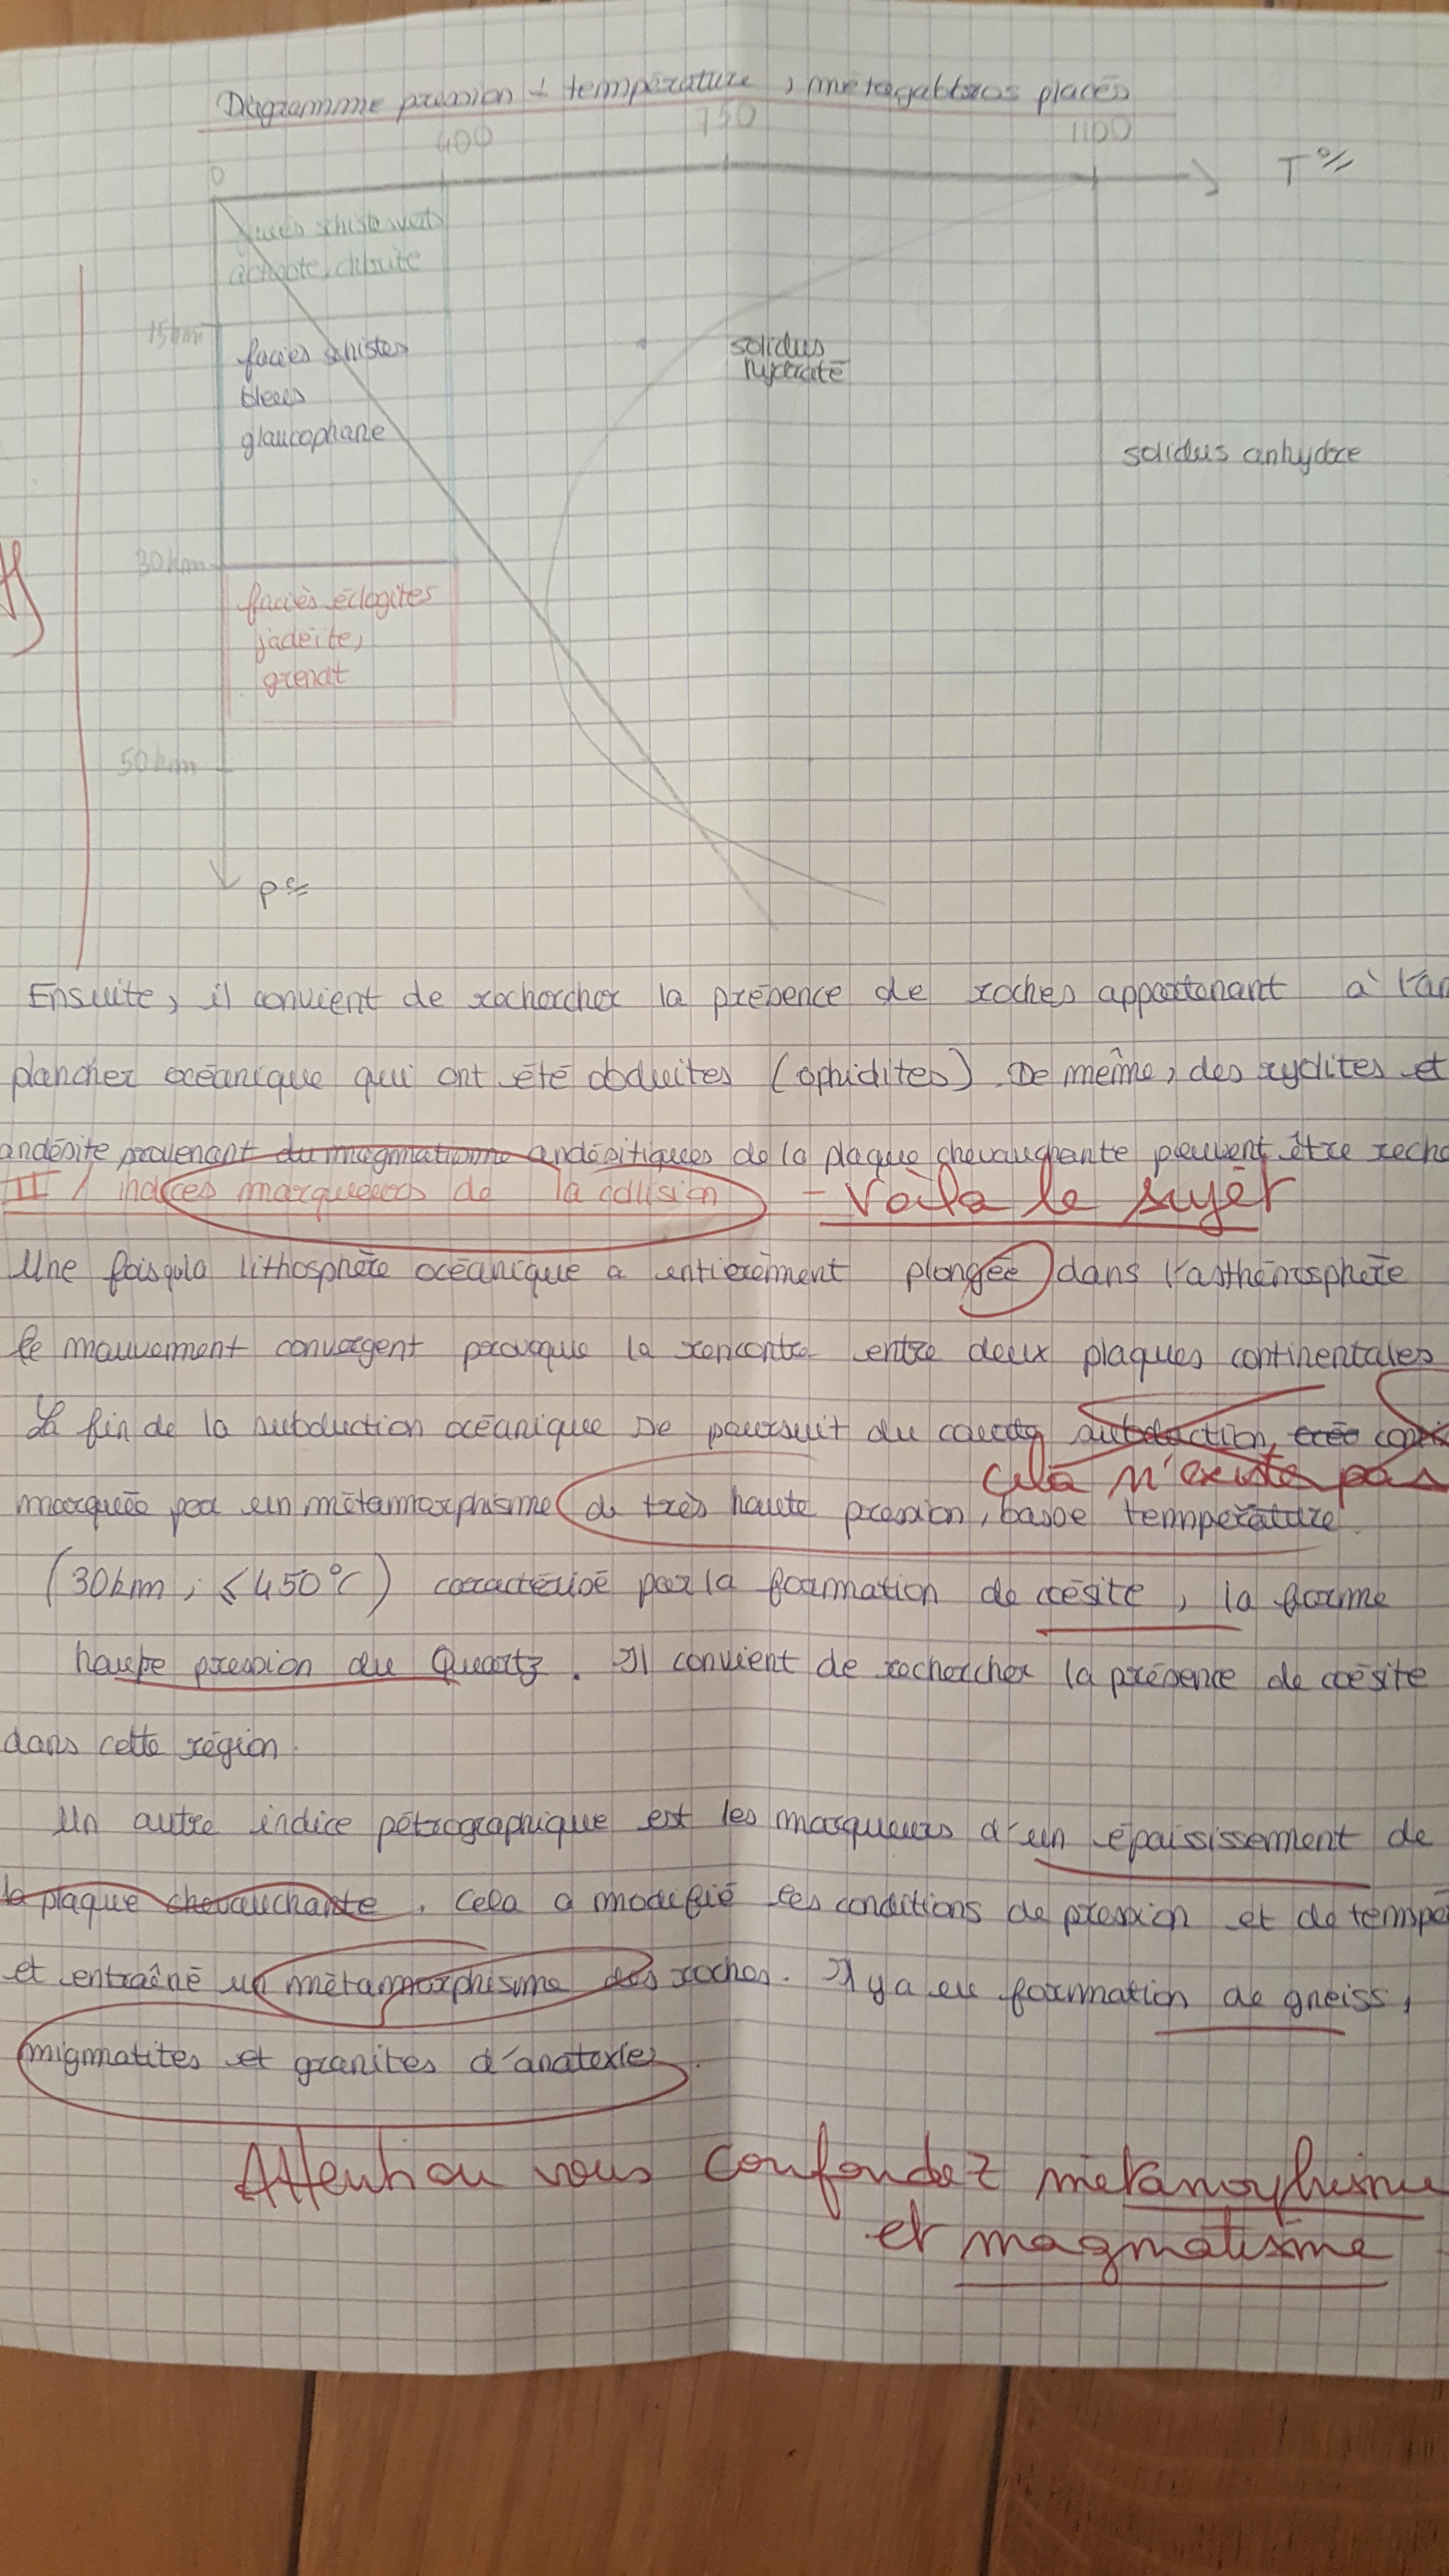 Diagramme pression - température, métagabbros placés
0 400 750 1100
T°
faciès schistes verts
actinote, chlorite
15km
faciès schistes
bleus
glaucophane
solidus
hydraté
solidus anhydre
30km
faciès éclogites
jadéite,
grenat
50km
P
Ensuite, il convient de rechercher la présence de roches appartenant à l'an
plancher océanique qui ont été obduites (ophiolites). De même, des ryolites et
andésite provenant du magmatisme andésitiques de la plaque chevauchante peuvent être reche
II / indices marqueurs de la collision - Voilà le sujet
Une fois que la lithosphère océanique a entièrement plongée dans l'asthénosphère
le mouvement convergent provoque la rencontre entre deux plaques continentales
La fin de la subduction océanique se poursuit du subduction,
cela n'existe pas
marquée par un métamorphisme de très haute pression, basse température.
(30km, ≤450°C) caractérisé par la formation de coésite, la forme
haute pression du Quartz. Il convient de rechercher la présence de coésite
dans cette région.
Un autre indice pétrographique est les marqueurs d'un épaississement de
la plaque chevauchante. Cela a modifié les conditions de pression et de tempé
et entraîné un métamorphisme des roches. Il y a eu formation de gneiss,
migmatites et granites d'anatexie.
Attention vous confondez métamorphisme
et magmatisme